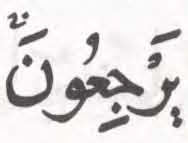 يَرْجِعُونَ ۝